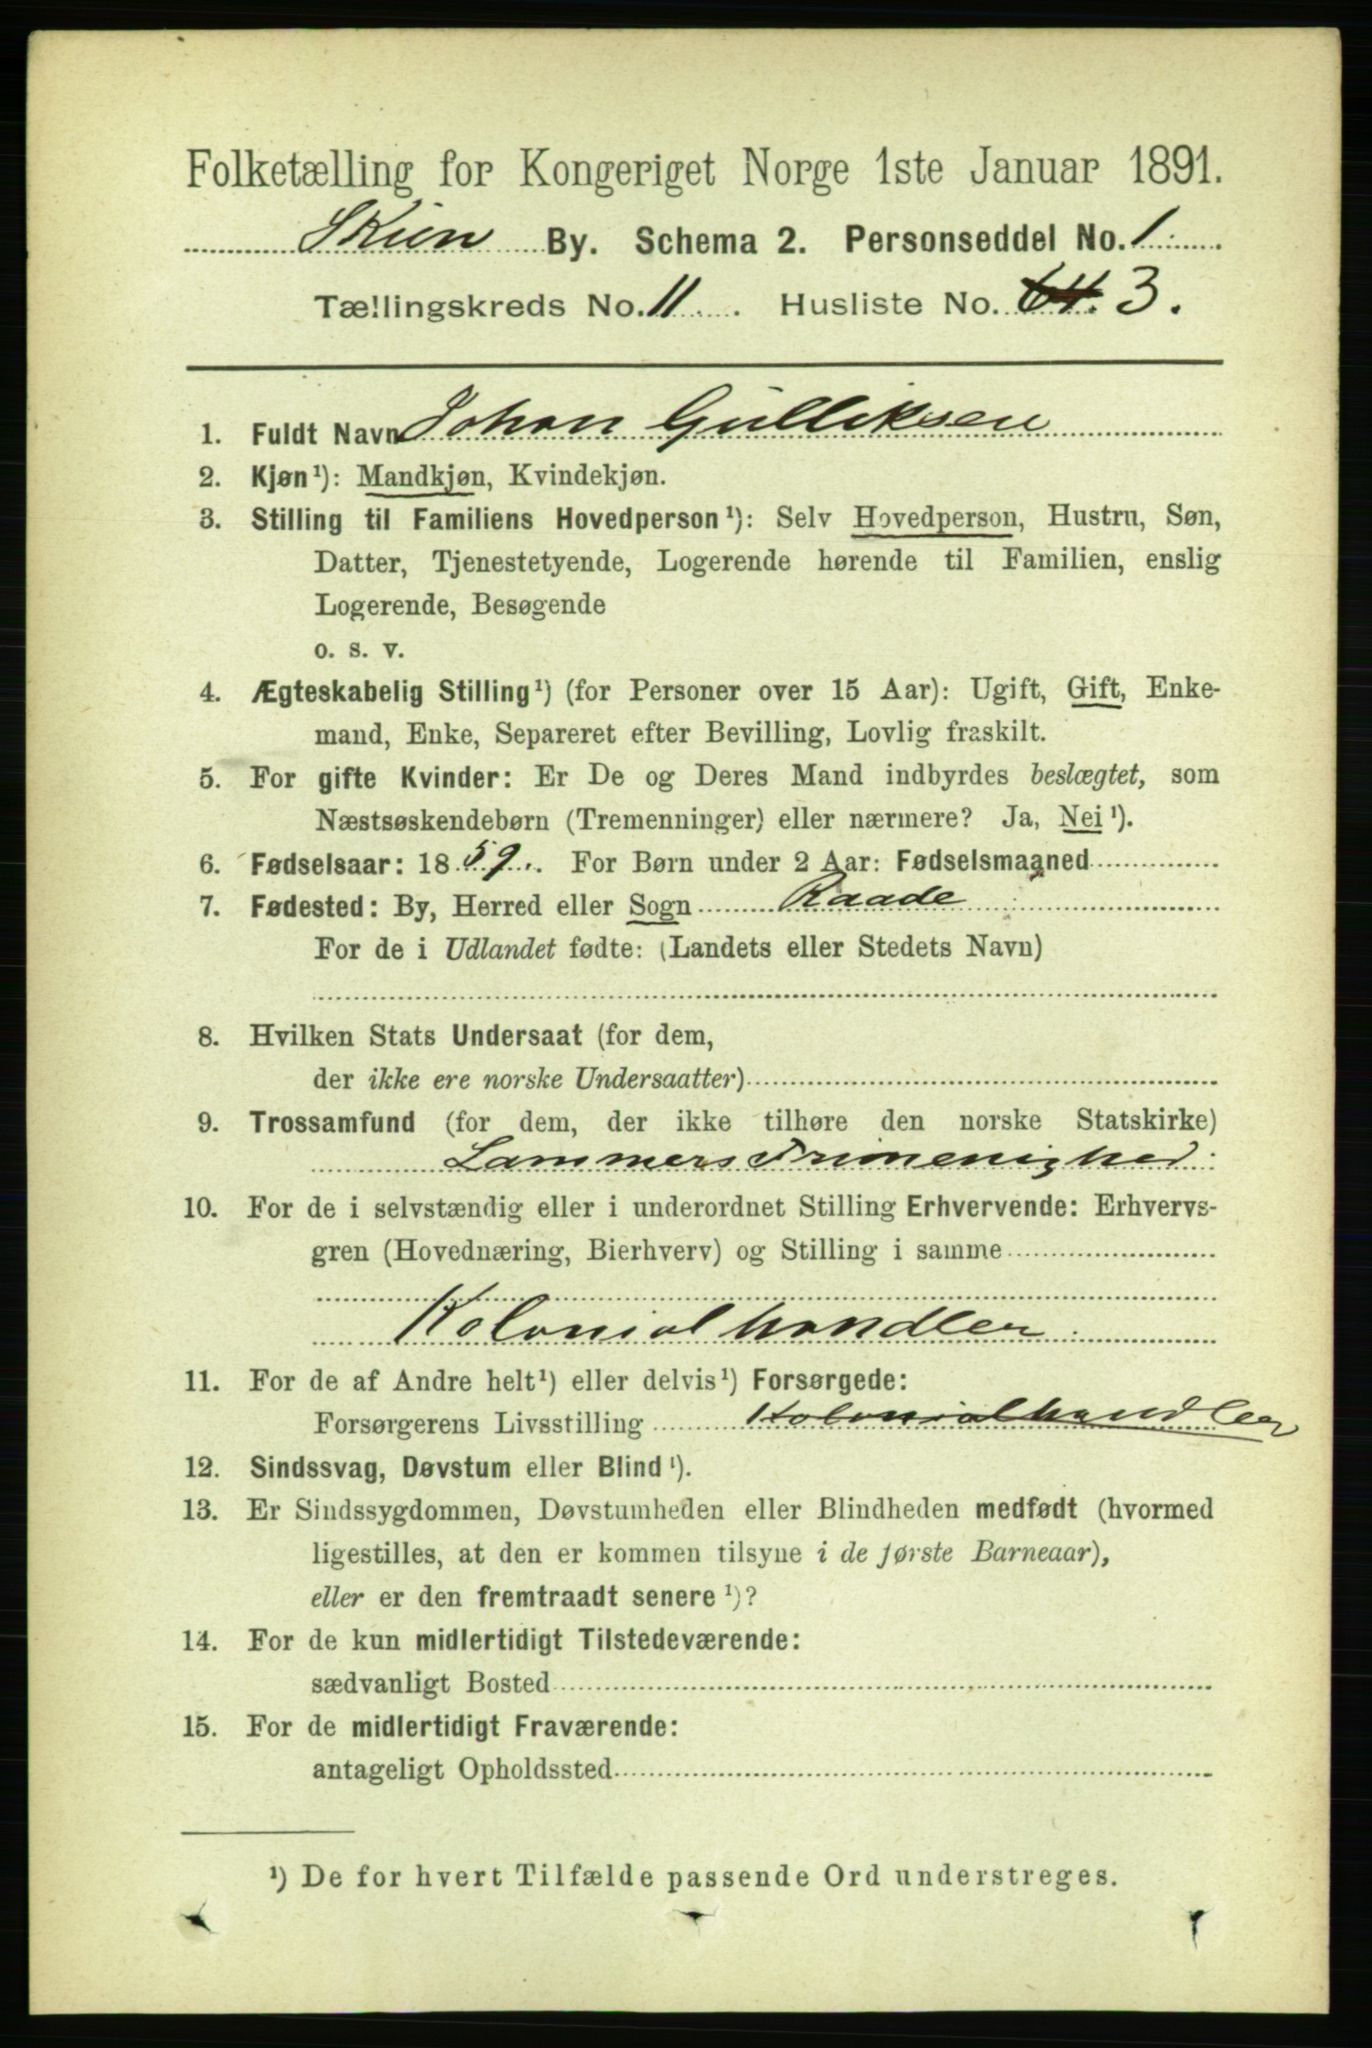 Folketælling for Kongeriget Norge 1ste Januar 1891.
Skien By. Schema 2. Personseddel No. 1
Tællingskreds No. 11. Husliste No. 64. 3.
1. Fuldt Navn Johan Gulliksen
2. Kjøn¹): Mandkjøn, Kvindekjøn.
3. Stilling til Familiens Hovedperson¹): Selv Hovedperson, Hustru, Søn,
Datter, Tjenestetyende, Logerende hørende til Familien, enslig
Logerende, Besøgende
o. s. v.
4. Ægteskabelig Stilling¹) (for Personer over 15 Aar): Ugift, Gift, Enke-
mand, Enke, Separeret efter Bevilling, Lovlig fraskilt.
5. For gifte Kvinder: Er De og Deres Mand indbyrdes beslægtet, som
Næstsøskendebørn (Tremenninger) eller nærmere? Ja, Nei¹).
6. Fødselsaar: 1859. For Børn under 2 Aar: Fødselsmaaned
7. Fødested: By, Herred eller Sogn Raade
For de i Udlandet fødte: (Landets eller Stedets Navn)
8. Hvilken Stats Undersaat (for dem,
der ikke ere norske Undersaatter)
9. Trossamfund (for dem, der ikke tilhøre den norske Statskirke)
Lammers Frimenighed
10. For de i selvstændig eller i underordnet Stilling Erhvervende: Erhvervs-
gren (Hovednæring, Bierhverv) og Stilling i samme
Kolonialhandler
11. For de af Andre helt¹) eller delvis¹) Forsørgede:
Forsørgerens Livsstilling Kolonialhandler
12. Sindssvag, Døvstum eller Blind¹).
13. Er Sindssygdommen, Døvstumheden eller Blindheden medfødt (hvormed
ligestilles, at den er kommen tilsyne i de første Barneaar),
eller er den fremtraadt senere¹)?
14. For de kun midlertidigt Tilstedeværende:
sædvanligt Bosted
15. For de midlertidigt Fraværende:
antageligt Opholdssted
¹) De for hvert Tilfælde passende Ord understreges.